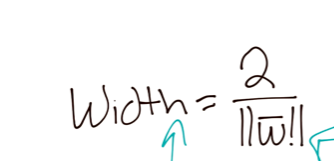 Width = 2 / ||w̅||